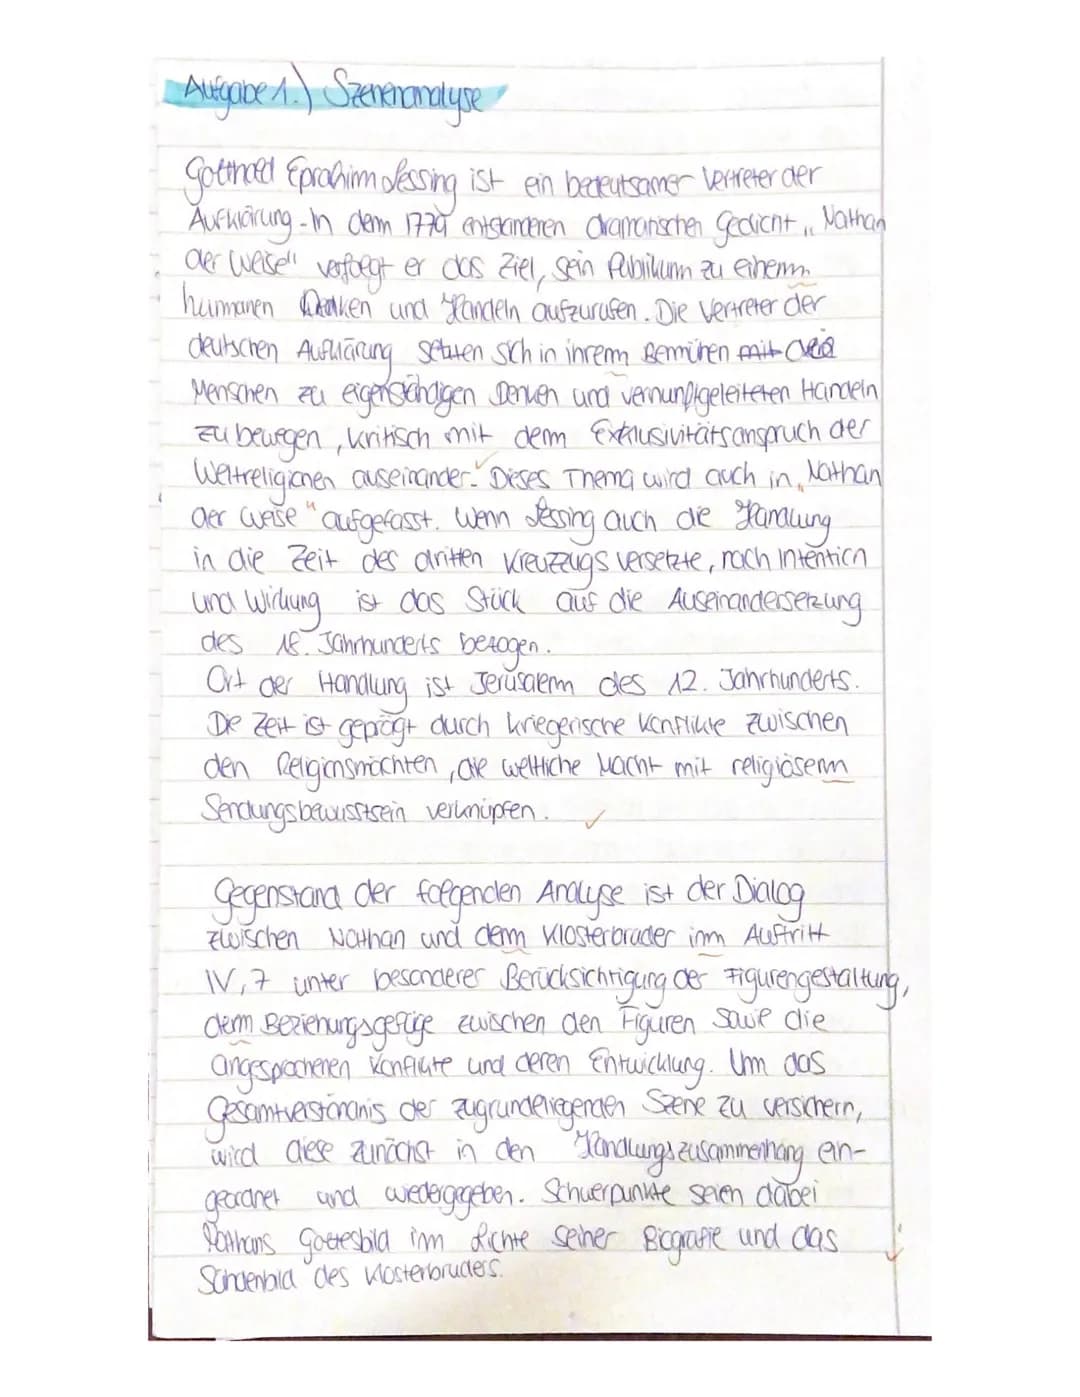 Aufgabe 1.) Szenenanalyse
Gotthold Eprahim Lessing ist ein bedeutsamer Vertreter der
Aufklärung. In dem 1779 entstandenen dramatischen Gedicht „Nathan
der Weise" verfolgt er das Ziel, sein Publikum zu einem
humanen Denken und Handeln aufzurufen. Die Vertreter der
deutschen Aufklärung setzten sich in ihrem Bemühen mit die
Menschen zu eigenständigen Denken und vernunftgeleiteten Handeln
zu bewegen, kritisch mit dem Exklusivitätsanspruch der
Weltreligionen auseinander. Dieses Thema wird auch in „Nathan
der Weise" aufgefasst. Wenn Lessing auch die Handlung
in die Zeit des dritten Kreuzzugs versetzte, nach Intention
und Wirkung ist das Stück auf die Auseinandersetzung
des 18. Jahrhunderts bezogen.
Ort der Handlung ist Jerusalem des 12. Jahrhunderts.
Die Zeit ist geprägt durch kriegerische Konflikte zwischen
den Religionsmächten, die weltliche Macht mit religiösem
Sendungsbewusstsein verknüpfen.
Gegenstand der folgenden Analyse ist der Dialog
zwischen Nathan und dem Klosterbruder im Auftritt
IV, 7 unter besonderer Berücksichtigung der Figurengestaltung,
dem Beziehungsgefüge zwischen den Figuren sowie die
angesprochenen Konflikte und deren Entwicklung. Um das
Gesamtverständnis der zugrundeliegenden Szene zu versichern,
wird diese zunächst in den Handlungszusammenhang ein-
geordnet und wiedergegeben. Schwerpunkte seien dabei
Nathans Gottesbild im Lichte seiner Biografie und das
des Klosterbruders.